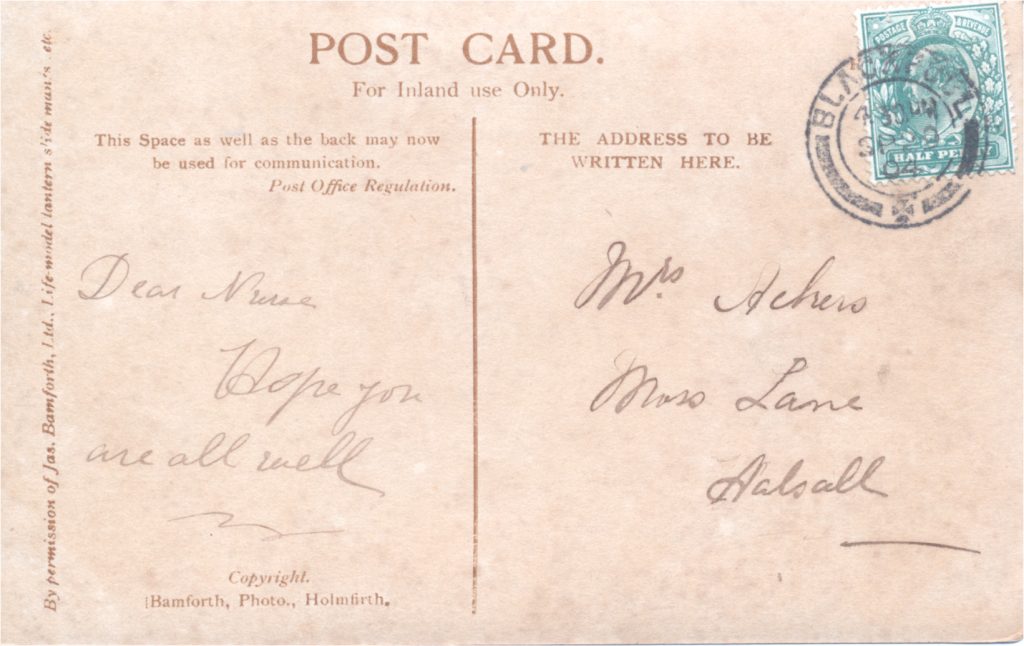 POST CARD.
For Inland use Only.
This Space as well as the back may now
be used for communication.
Post Office Regulation.
THE ADDRESS TO BE
WRITTEN HERE.
POSTAGE & REVENUE
HALF PENNY
04
Dear Nurse
Hope you
are all well
Mrs Ackers
Moss Lane
Halsall
Copyright.
Bamforth, Photo., Holmfirth.
By permission of Jas. Bamforth, Ltd., Life-model lantern slide man's etc.